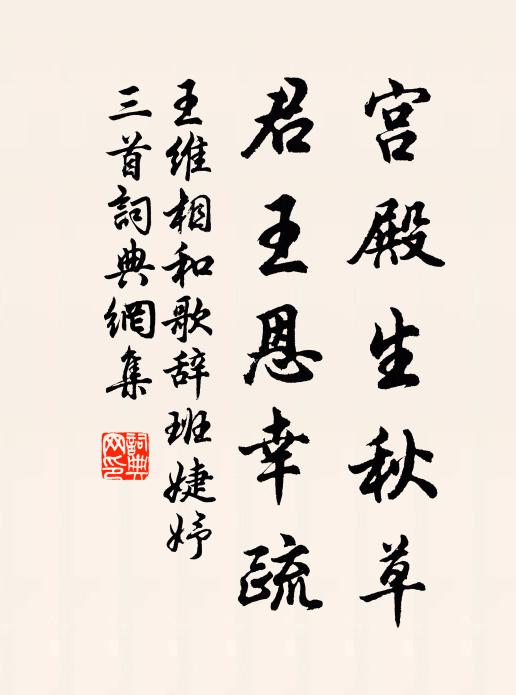 宫殿生秋草
君王恩幸疏
王维相和歌辞班婕妤
三首詞典網集
詞典网印